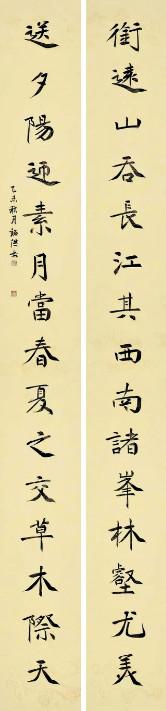 銜遠山吞長江其西南諸峯林壑尤美
送夕陽迎素月當春夏之交草木際天